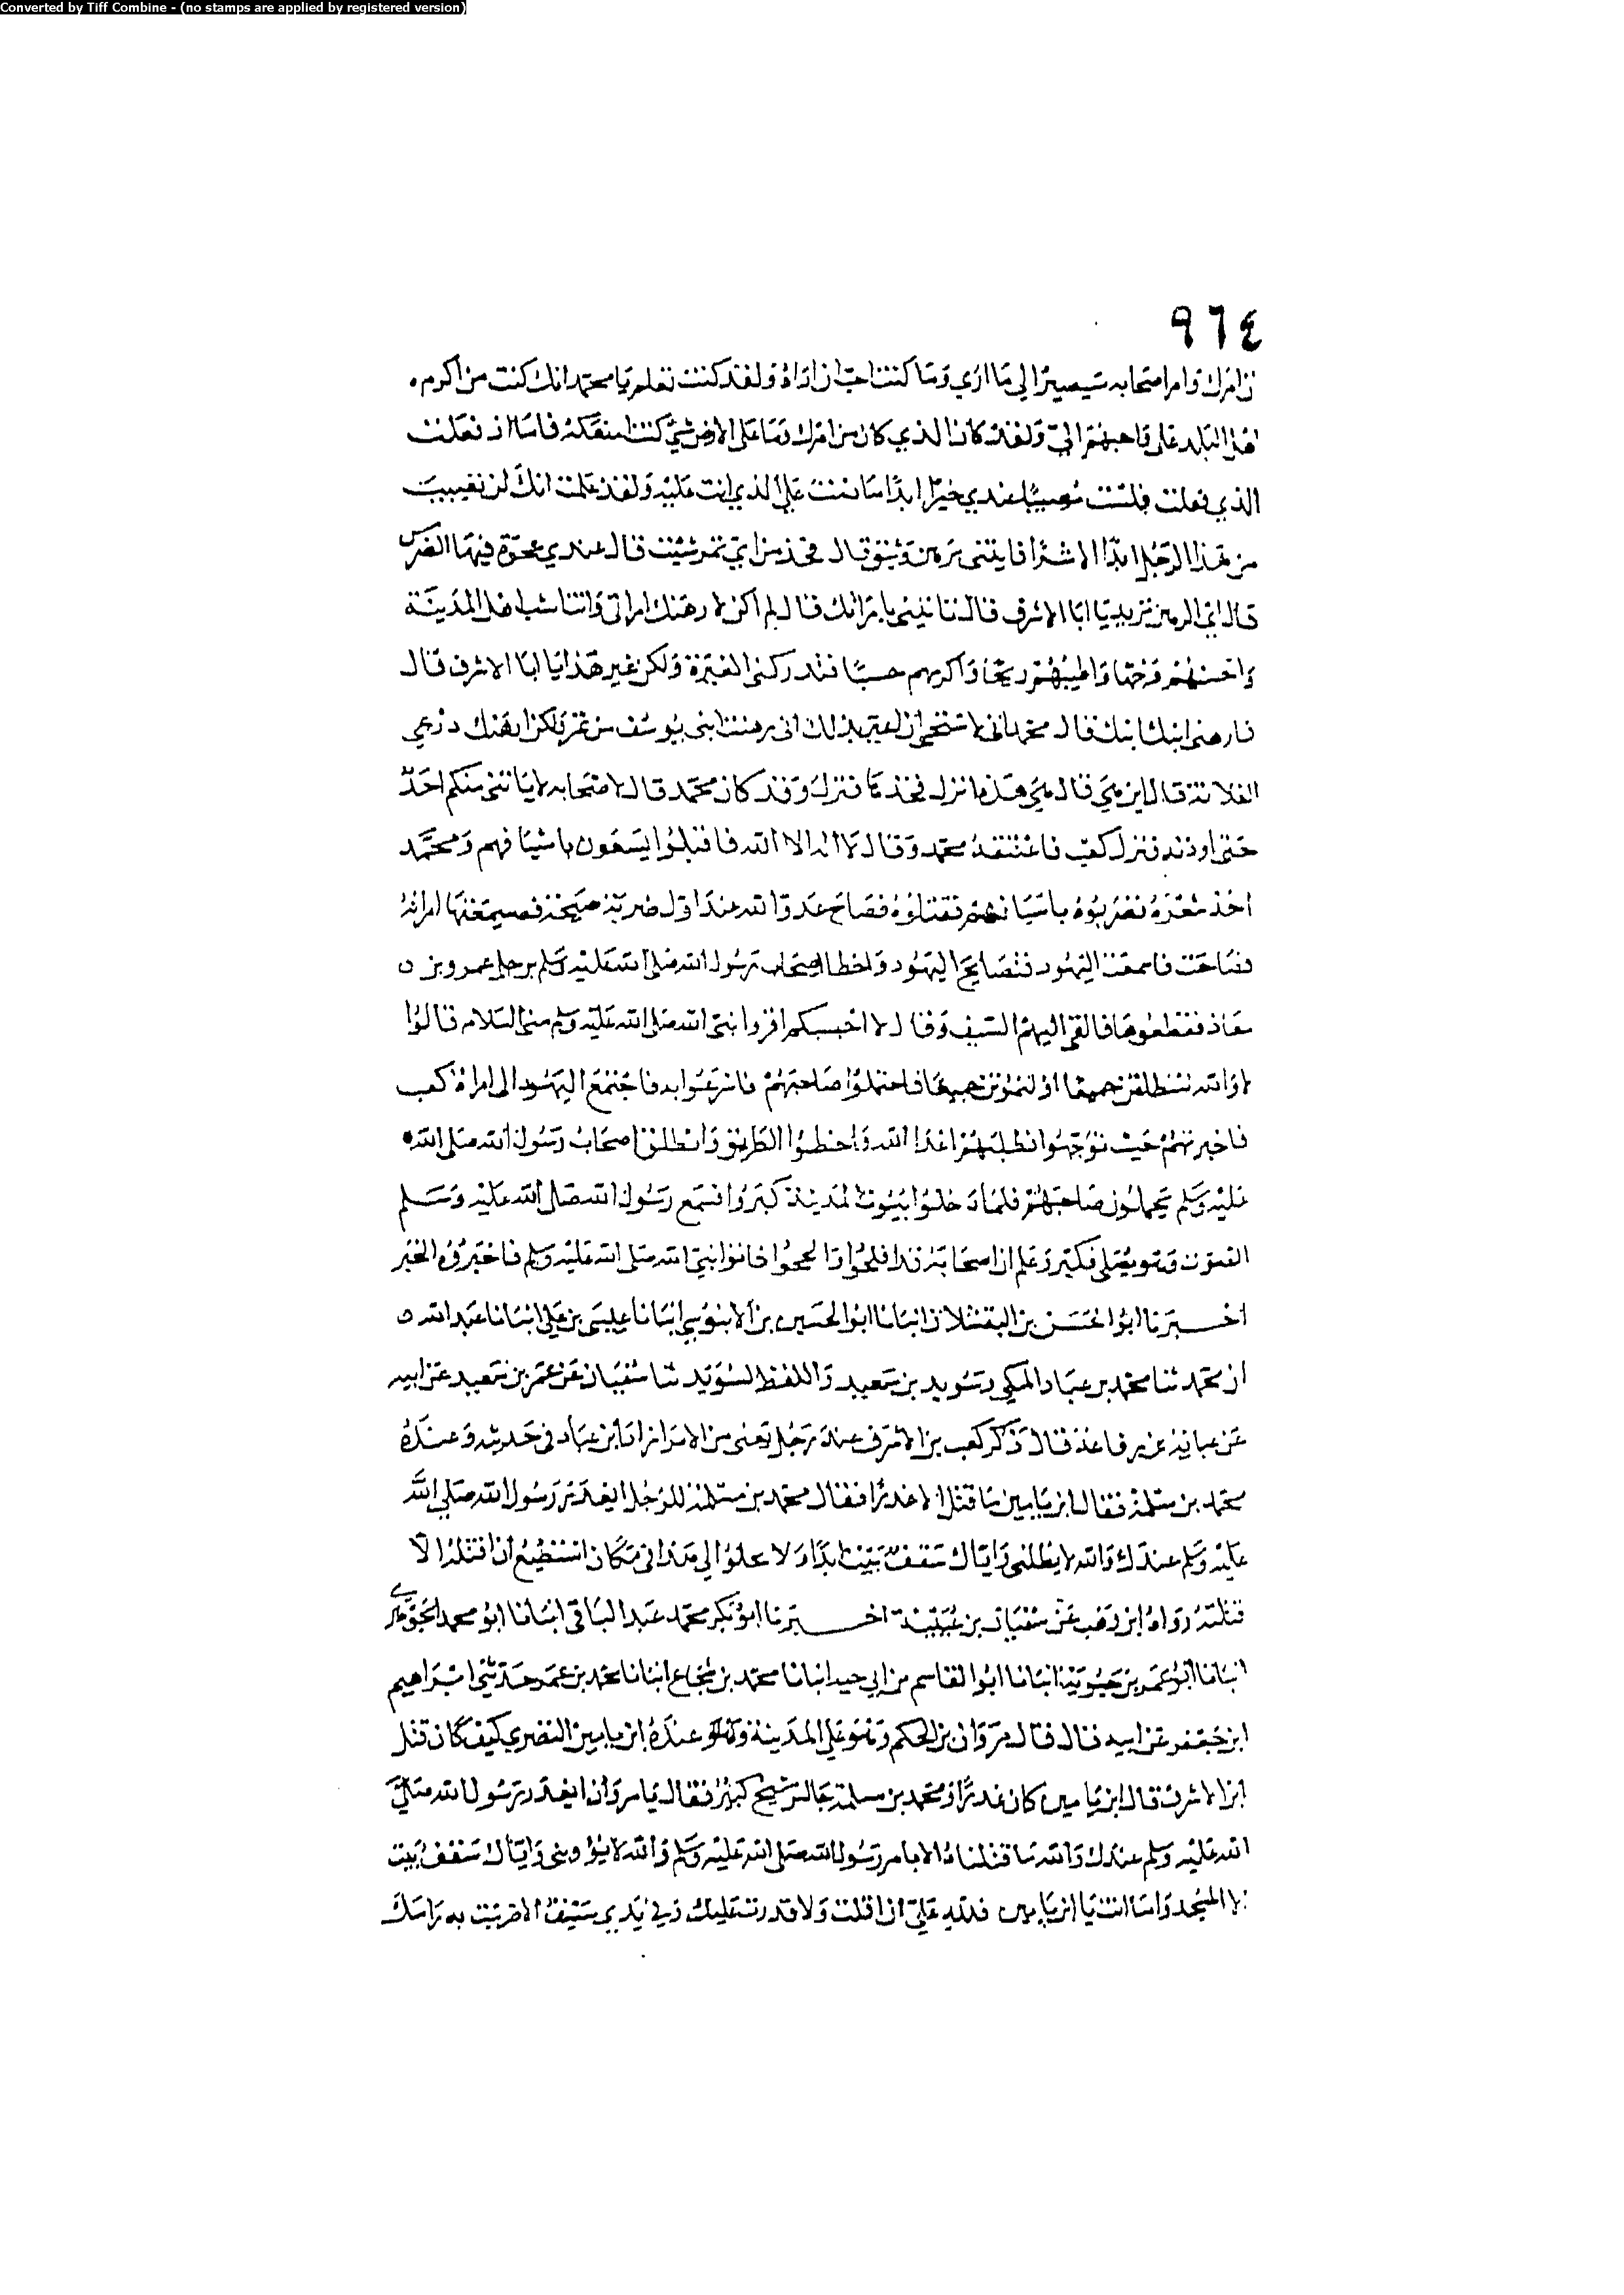 Converted by Tiff Combine - (no stamps are applied by registered version)
٩٦٤
امرك وامر اصحابه سيصير الى ما ارى وما كنت احب ان اراه ولقد كنت تعلم يا محمد انك كنت من اكرم
هذا البلد على واحبهم الي ولقد كان الذي كان من امرك وما على الارض شي كنت امنعكه فاما اذ فعلت
الذي فعلت فلست مصيبا عندي خيرا ابدا ما دمت على الذي انت عليه ولقد علمت انك لن تصيب
من هذا الرجل ابدا الا شرا فايتني برهن وثيق قال فخذ من اي تمر شئت قال عندي عجوة فيها الضرس
قال اي الرهن تريد يا ابا الاشرف قال تاتيني بامراتك قال لم اكن لارهنك امراتي وانت اشب اهل المدينة
واحسنهم وجها واطيبهم ريحا واكرمهم حسبا فتدركني الغيرة ولكن غير هذا يا ابا الاشرف قال
فارهني ابنك قال محمد اني لاستحي ان اعير بذلك اني رهنت ابني بوسق من تمر ولكن ارهنك درعي
الفلانة قال اين هي قال هي هذه انزل فخذها فنزل وقد كان محمد قال لاصحابه لا ياتني منكم احد
حتى اوذنه فنزل كعب فاعتنقه محمد وقال لا اله الا الله فاقبلوا يسعون باسيافهم ومحمد
اخذ شعره فضربوه باسيافهم فقتلوه فصاح عدو الله عند اول ضربة صيحة فسمعتها امراته
فصاحت فاسمعت اليهود فتصايح اليهود واخطا اصحاب رسول الله صلى الله عليه وسلم برجل عمرو بن
معاذ فقطعوها فالقى اليهم السيف وقال لا احبسكم اقروا نبي الله صلى الله عليه وسلم مني السلام قالوا
لا والله لننطلقن جميعا او لنموتن جميعا فاحتملوا صاحبهم فاسرعوا به فاجتمع اليهود الى امراة كعب
فاخبرتهم حيث توجهوا فطلبهم اعدا الله واخطوا الطريق وانطلق اصحاب رسول الله صلى الله
عليه وسلم يحملون صاحبهم فلما دخلوا بيوت المدينة كبروا فسمع رسول الله صلى الله عليه وسلم
الصوت وهو يصلي فكبر وعلم ان اصحابه قد افلحوا وانجحوا فاتوا نبي الله صلى الله عليه وسلم فاخبروه الخبر
اخبرنا ابو الحسن بن البقشلان انبانا ابو الحسين بن الابنوسي انبانا عيسى بن علي انبانا عبد الله
ان محمد ثنا محمد بن عباد المكي وسويد بن سعيد واللفظ لسويد ثنا سفيان عن عمر بن سعيد عن ابيه
عن عباية بن رفاعة قال ذكر كعب بن الاشرف عند رجل يعني من الامرا زاد ابن عباد في حديثه وعنده
محمد بن مسلمة فقال ابن يامين ما قتل الا غدرا فقال محمد بن مسلمة للرجل ايغدر رسول الله صلى الله
عليه وسلم عندك والله لا يظلني واياك سقف بيت ابدا ولا هذا في مكان استطيع ان اقتله الا
قتلته رواه ابن وهب عن سفيان بن عيينة اخبرنا ابو بكر محمد عبد الباقي انبانا ابو محمد الجوهري
انبانا ابو عمر بن حيوية انبانا ابو القاسم بن ابي حية انبانا محمد بن شجاع انبانا محمد بن عمر حدثني ابراهيم
ابن جعفر عن ابيه قال قال مروان بن الحكم وهو على المدينة وعنده ابن يامين النضري كيف كان قتل
ابن الاشرف قال ابن يامين كان غدرا ومحمد بن مسلمة جالس شيخ كبير فقال يا مروان ايغدر رسول الله صلى
الله عليه وسلم عندك والله ما قتلناه الا بامر رسول الله صلى الله عليه وسلم والله لا يؤويني واياك سقف بيت
الا المسجد واما انت يا ابن يامين فلله علي ان افلت ولا قدرت عليك وفي يدي سيف الا ضربت به راسك